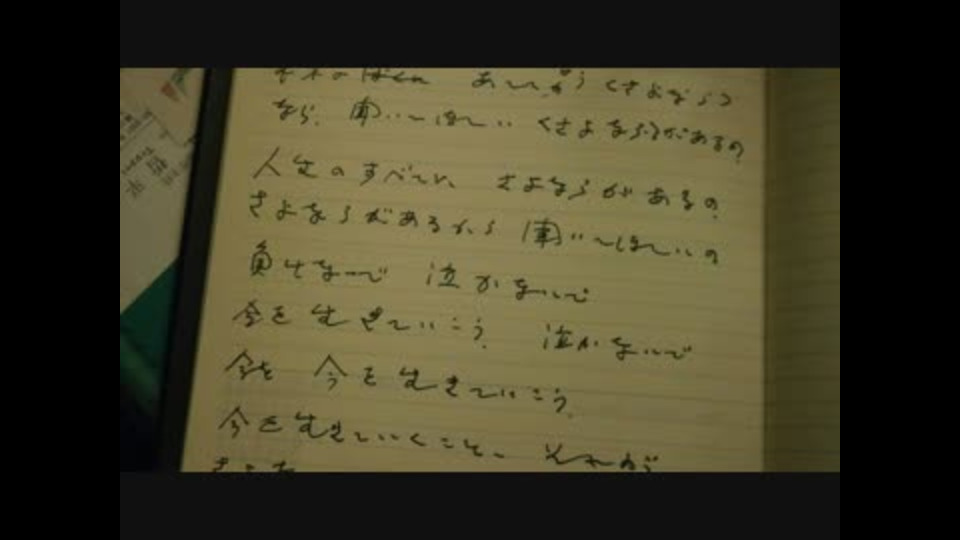 さよなら
なら、聞いてほしい くさよならがあるの
人生のすべてに さよならがあるの
さよならがあるから 聞いてほしいの
負けないで 泣かないで
今を生きていこう 泣かないで
今を 今を生きていこう
今を生きていくこと、それが